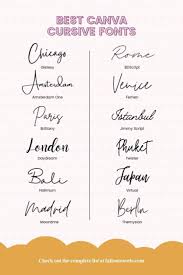 BEST CANVA
CURSIVE FONTS
Chicago
Rome
BDScript
Amsterdam
Amsterdam One
Venice
Paris
Brittany
Istanbul
Jimmy Script
London
Daydream
Phuket
Bali
Halimum
Japan
Virtual
Madrid
Moontime
Berlin
Thenysian
Check out the complete list at